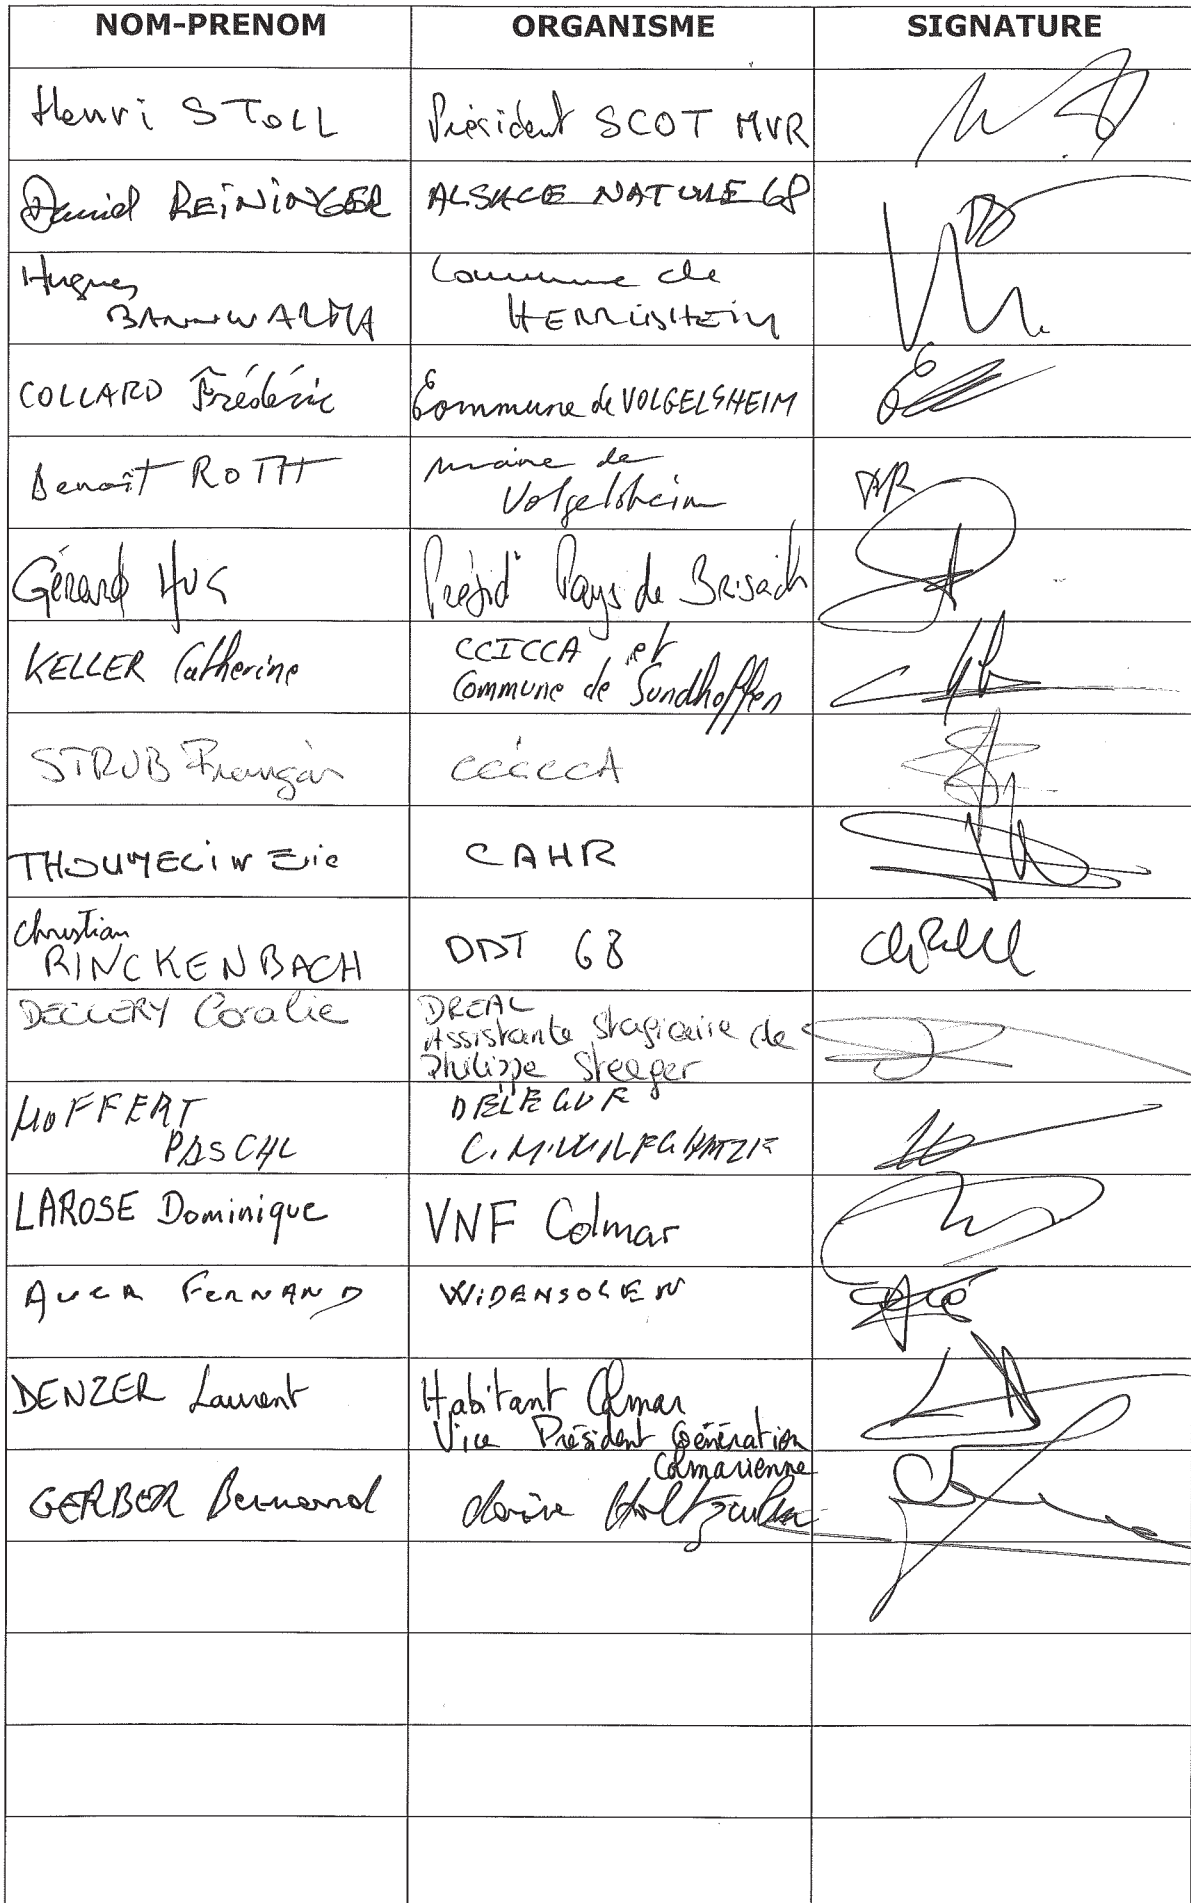 NOM-PRENOM ORGANISME SIGNATURE
Henri STOLL Président SCOT MVR
Daniel REININGER ALSACE NATURE 68
Hugues Commune de
HERRLISHEIM
COLLARD Frédéric Commune de VOLGELSHEIM
Benoît ROTH maire de
Volgelsheim
Gérard HUG Présid<sup>t</sup> Pays de Brisach
KELLER Catherine CCICCA et
Commune de Sundhoffen
STRUB François CCICCA
Eric CAHR
Christian
RINCKENBACH DDT 68
DECLERY Coralie DREAL
Assistante stagiaire de
Philippe Steeger
HOFFERT DELEGUE
PASCAL
LAROSE Dominique VNF Colmar
FERNAND WIDENSOLEN
DENZER Laurent Habitant Colmar
Vice Président Génération
Colmarienne
GERBER Bernard